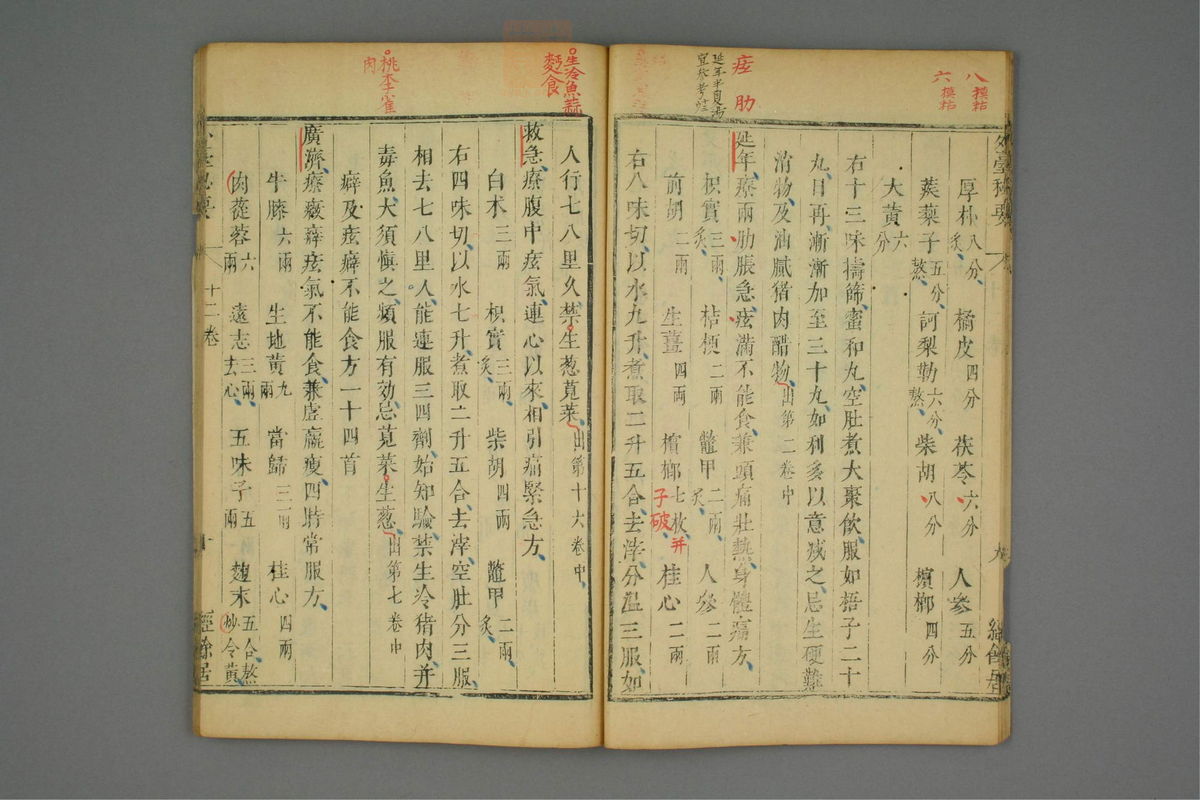 外臺秘要
厚朴八分炙 橘皮四分 茯苓六分 人參五分
蒺藜子五分熬 訶梨勒六分熬 柴胡八分 檳榔四分
大黃六分
右十三味擣篩蜜和丸空肚煮大棗飲服如梧子二十
丸日再漸漸加至三十丸如利多以意減之忌生硬難
消物及油膩猪肉醋物出第二卷中
延年療兩肋脹急痃滿不能食兼頭痛壯熱身體痛方
枳實三兩炙 桔梗二兩 鼈甲二兩炙 人參二兩
前胡二兩 生薑四兩 檳榔七枚 桂心二兩
子破
并
右八味切以水九升煮取二升五合去滓分温三服如
八模粘
六模粘
痃肋
延年半夏湯
宜參考
人行七八里久禁生葱莧菜出第十六卷中
救急療腹中痃氣連心以來相引痛緊急方
白术三兩 枳實三兩炙 柴胡四兩 鼈甲二兩炙
右四味切以水七升煮取二升五合去滓空肚分三服
相去七八里人能連服三四劑始知驗禁生冷猪肉并
毒魚大須慎之頻服有効忌莧菜生葱出第七卷中
癖及痃癖不能食方一十四首
廣濟療癥癖痃氣不能食兼虛羸瘦四時常服方
牛膝六兩 生地黃九兩 當歸三兩 桂心四兩
肉蓯蓉六兩 遠志三兩去心 五味子五兩 麴末五合熬炒令黃
十二卷
十
經餘居
生冷魚蒜
麪食
桃李雀
肉